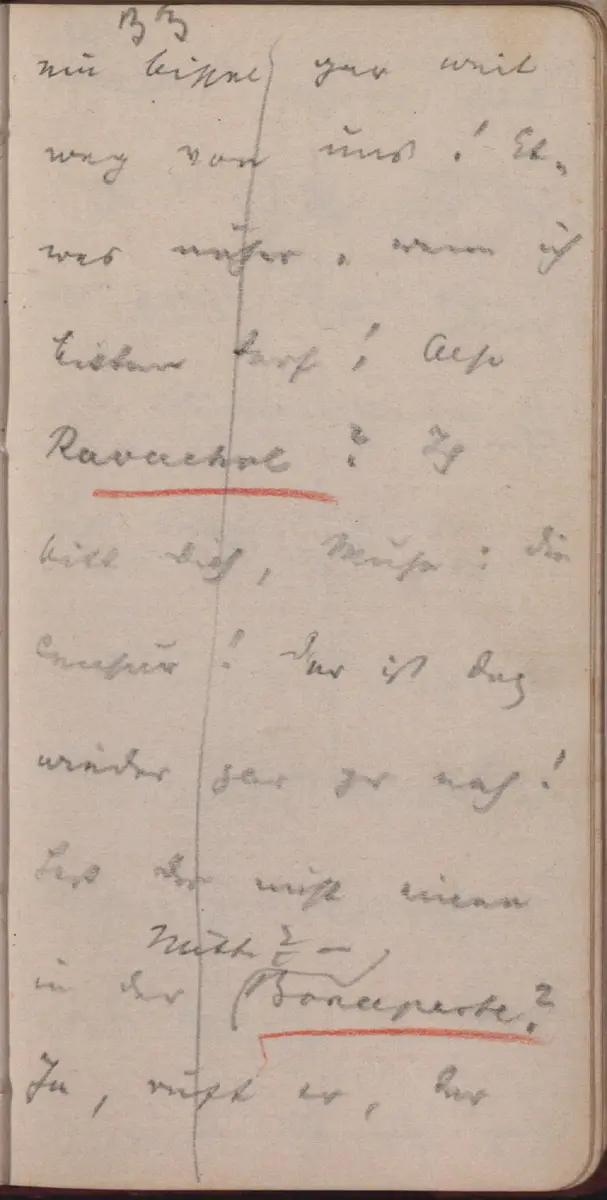 ein bissel gar weit
weg von uns! Et-
was näher, wenn ich
bitten darf! Also
Ravachol? Ich
bitt dich, Muse: die
Censur! Der ist doch
wieder gar zu nah!
Hast du nicht einen
in der
Bonaparte?
Ja, ruft er, der